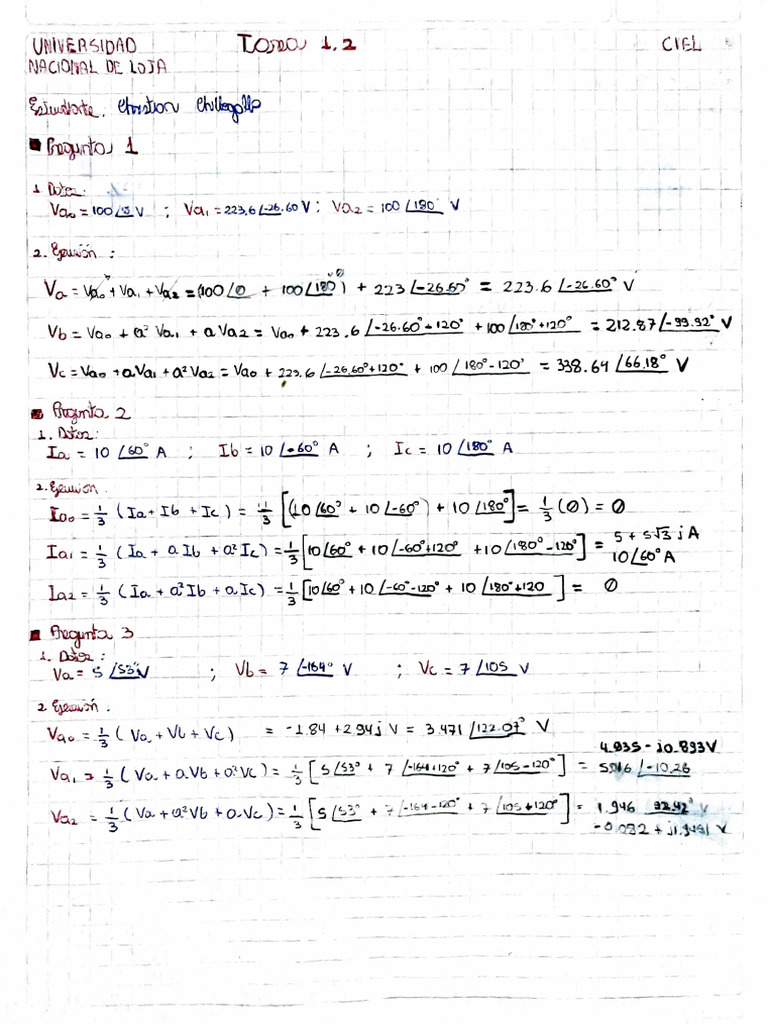 UNIVERSIDAD Tarea 1.2 CIEL
NACIONAL DE LOJA
Estudiante. Christian
Pregunta 1
1. Datos:
Va₀ = 100∠0 V ; Va₁ = 223,6∠-26.60 V ; Va₂ = 100∠180° V
2. Ejecución :
Va = Va₀ + Va₁ + Va₂ = (100∠0 + 100∠180°) + 223∠-26.60° = 223.6∠-26.60° V
Vb = Va₀ + a² Va₁ + a Va₂ = Va₀ + 223.6∠-26.60°+120° + 100∠180°+120° = 212.87∠-99.92° V
Vc = Va₀ + a Va₁ + a² Va₂ = Va₀ + 223.6∠-26.60°+120° + 100∠180°-120° = 338.64∠66.18° V
Pregunta 2
1. Datos:
Ia = 10∠60° A ; Ib = 10∠-60° A ; Ic = 10∠180° A
2. Ejecución.
Ia₀ = 1/3 (Ia + Ib + Ic) = 1/3 [(10∠60° + 10∠-60°) + 10∠180°] = 1/3 (0) = 0
Ia₁ = 1/3 (Ia + a Ib + a² Ic) = 1/3 [10∠60° + 10∠-60+120° + 10∠180°-120°] = 5 + 5√3 j A
10∠60° A
Ia₂ = 1/3 (Ia + a² Ib + a Ic) = 1/3 [10∠60° + 10∠-60°-120° + 10∠180°+120] = 0
Pregunta 3
1. Datos :
Va = 5∠53° V ; Vb = 7∠-164° V ; Vc = 7∠105 V
2 Ejecución .
Va₀ = 1/3 (Va + Vb + Vc) = -1.84 + 2.94j V = 3.471∠122.07° V
4.935 - j0.893 V
Va₁ = 1/3 (Va + a Vb + a² Vc) = 1/3 [5∠53° + 7∠-164+120° + 7∠105-120°] = 5.016∠-10.26
Va₂ = 1/3 (Va + a² Vb + a Vc) = 1/3 [5∠53° + 7∠-164-120° + 7∠105+120°] = 1.946∠92.42° V
-0.082 + j1.9451 V